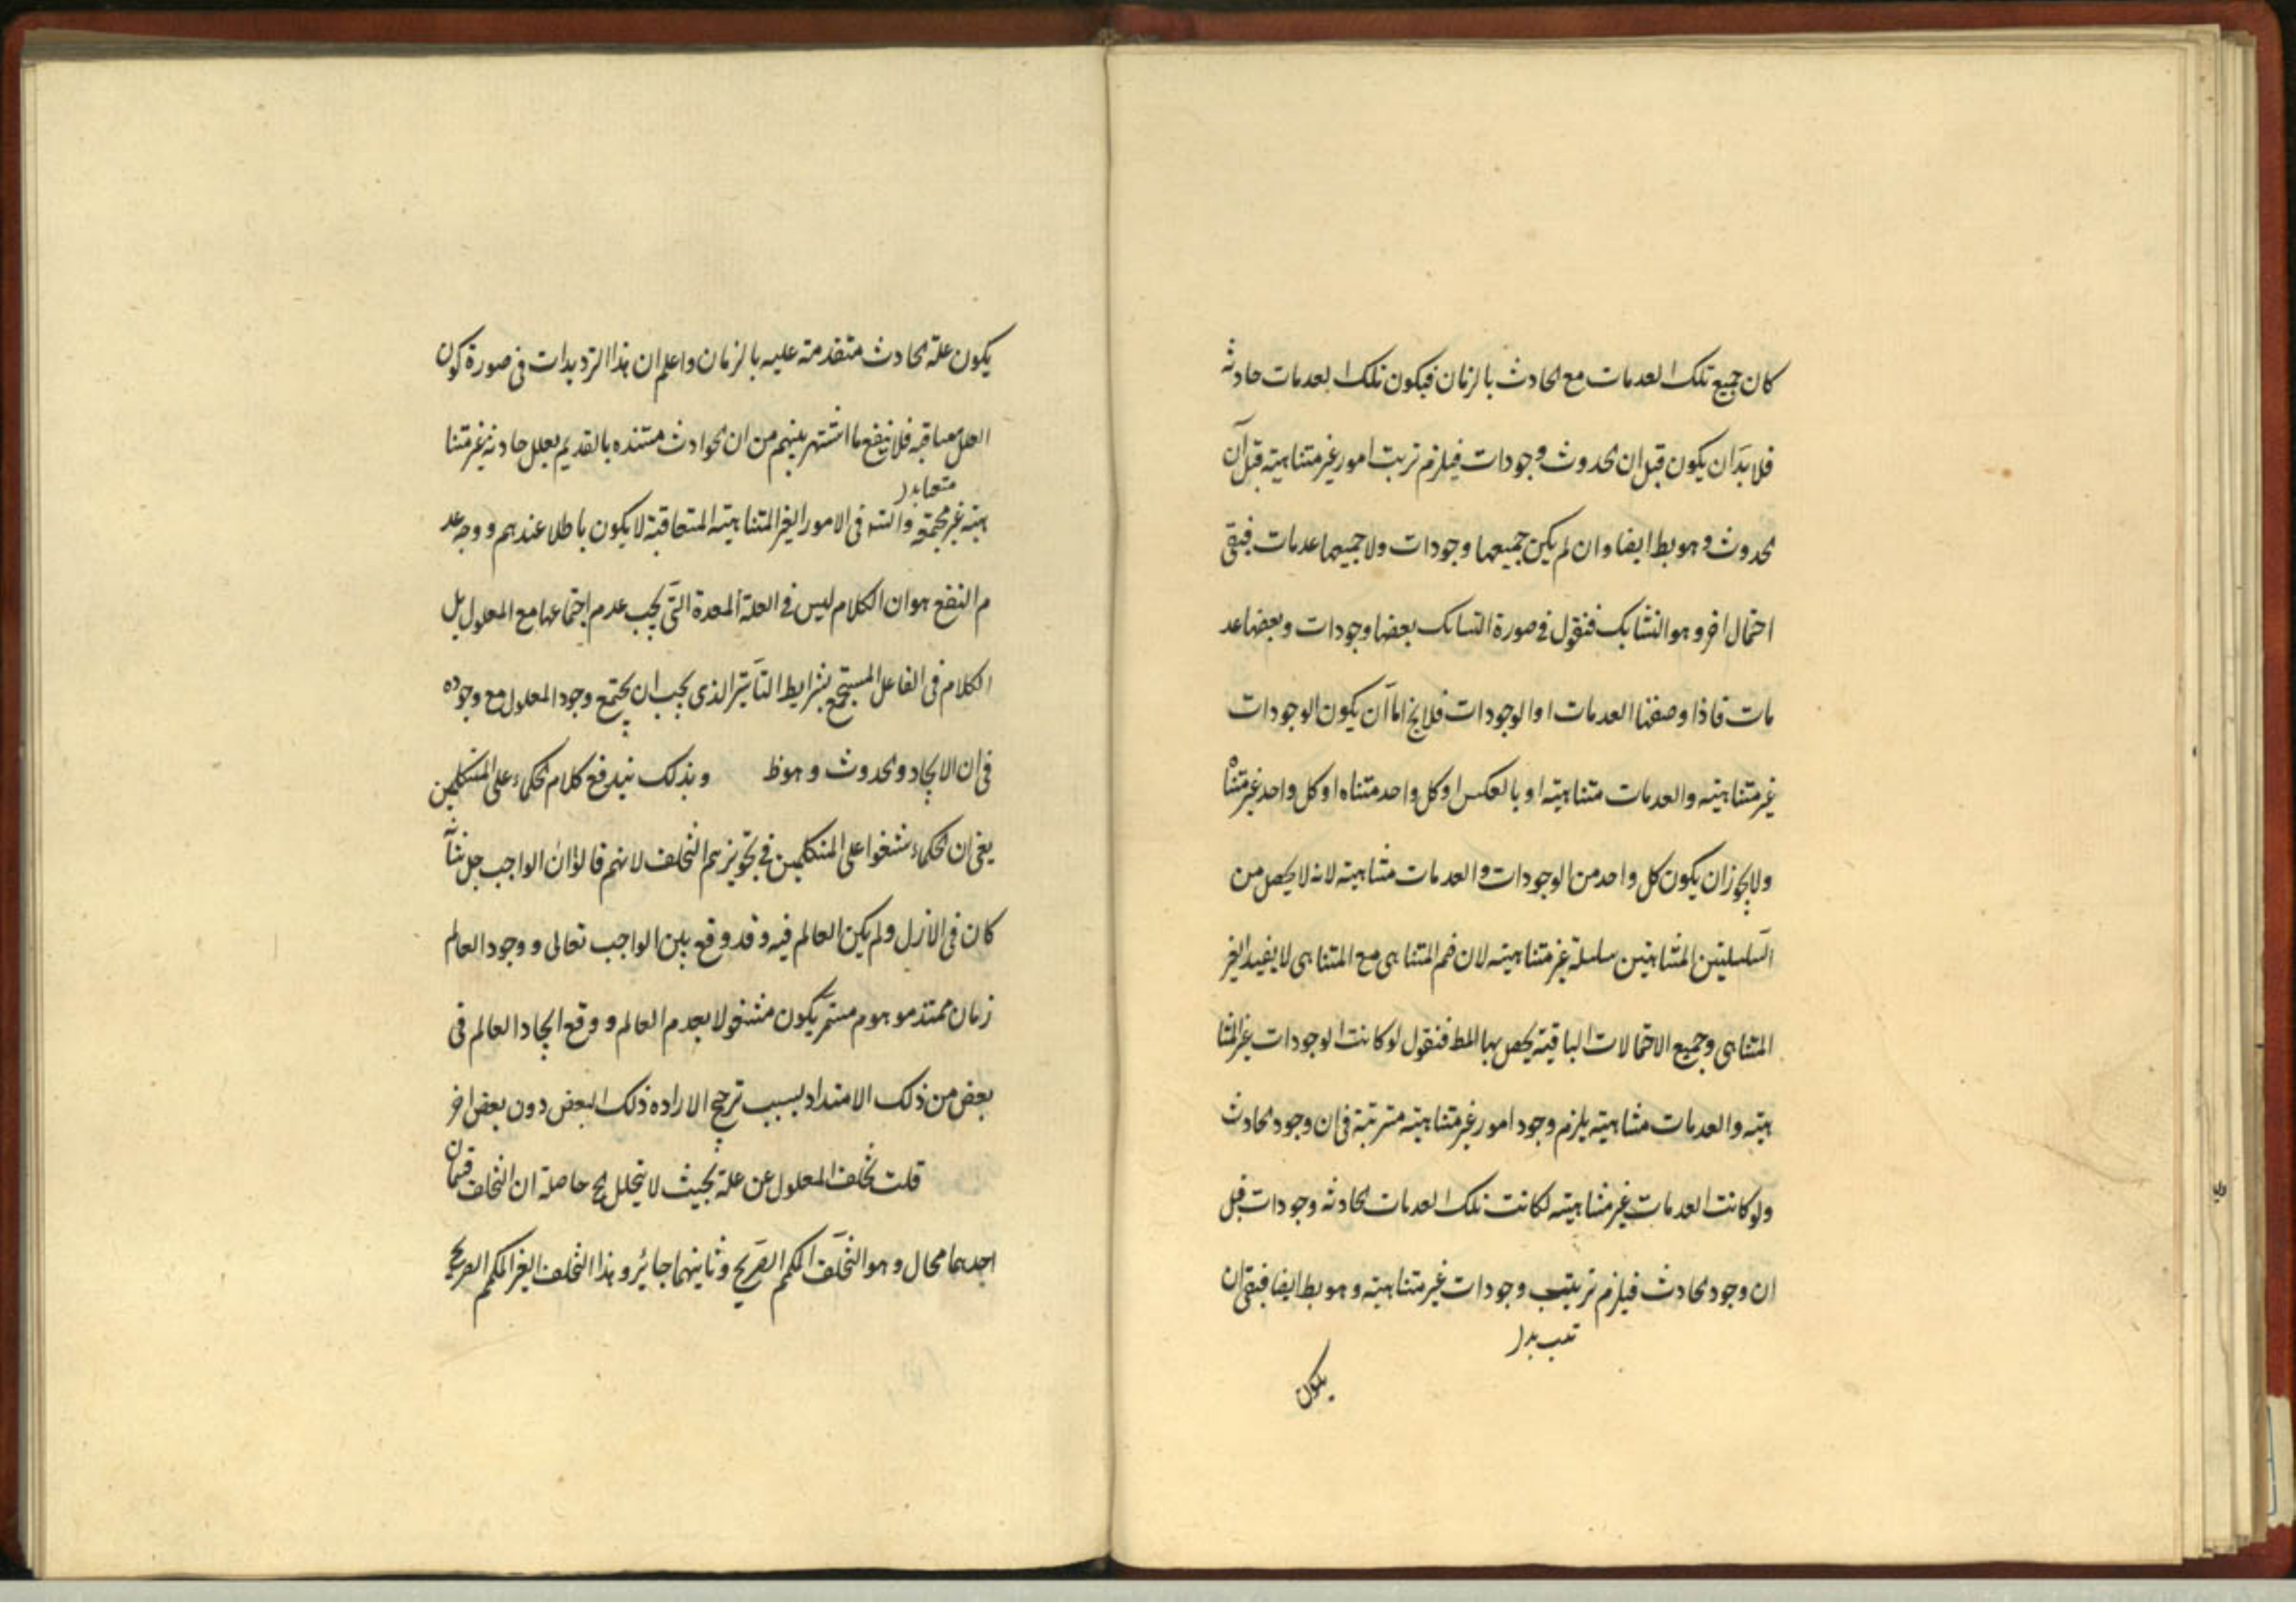 كان جميع تلك العدمات مع الحادث بالزمان فيكون تلك العدمات حادثه
فلا بدّ ان يكون قبل ان الحدوث وجودات فيلزم ترتب امور غير متناهيته قبل آن
الحدوث وهو بط ايضا وان لم يكن جميعها وجودات ولا جميعها عدمات فبقى
احتمال اخر وهو التشابك فنقول فى صورة التشابك بعضها وجودات وبعضها عد
مات فاذا وصفنا العدمات او الوجودات فلا يخ اما ان يكون الوجودات
غير متناهيته والعدمات متناهيته او بالعكس او كل واحد متناه او كل واحد غير متناه
ولا يجوز ان يكون كل واحد من الوجودات والعدمات متناهيته لانه لا يحصل من
السلسلتين المتناهيتين سلسلة غير متناهيته لان ضم المتناهى مع المتناهى لا يفيد الغير
المتناهى وجميع الاحتمالات الباقيته يحصل بها المط فنقول لو كانت الوجودات غير المتنا
هيته والعدمات متناهيته يلزم وجود امور غير متناهيته مترتبة فى ان وجود الحادث
ولو كانت العدمات غير متناهيته لكانت تلك العدمات الحادثه وجودات قبل
ان وجود الحادث فيلزم ترتيب وجودات غير متناهيته وهو بط ايضا فبقى ان
يكون
يكون علة الحادث متقدمته عليه بالزمان واعلم ان هذا الترديدات فى صورة كون
العلل معاقبه فلا ينفع ما اشتهر بينهم من ان الحوادث مستنده بالقديم بعلل حادثه غير متنا
هيته غير مجتمعة والتسه فى الامور الغير المتناهيته المتعاقبة لا يكون باطلا عندهم ووجه عد
م النفع هو ان الكلام ليس فى العلة المعدة التى يجب عدم اجتماعها مع المعلول بل
الكلام فى الفاعل المستجمع بشرايط التأثير الذى يجب ان يجتمع وجود المعلول مع وجوده
فى ان الايجاد والحدوث وهو ظ وبذلك يندفع كلام الحكماء على المتكلمين
يعنى ان الحكماء شنعوا على المتكلمين فى تجويزهم التخلف لانهم قالوا ان الواجب جل
كان فى الازل ولم يكن العالم فيه وقد وقع بين الواجب تعالى ووجود العالم
زمان ممتد موهوم مستمر يكون مشغولا بعدم العالم ووقع ايجاد العالم فى
بعض من ذلك الامتداد بسبب ترجيح الاراده ذلك البعض دون بعض اخر
قلت تخلف المعلول عن علة بحيث لا يتخلل مح حاصله ان التخلف قسمان
احدهما محال وهو التخلف المكمم الصريح وثانيهما جائيز وهذا التخلف الغير المكمم الصريح